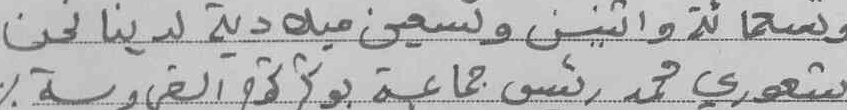 وتسعمائة واثنين وتسعين ميلادية لدينا نحن
شعوري محمد رئيس جماعة بوكركوح الفروسة %